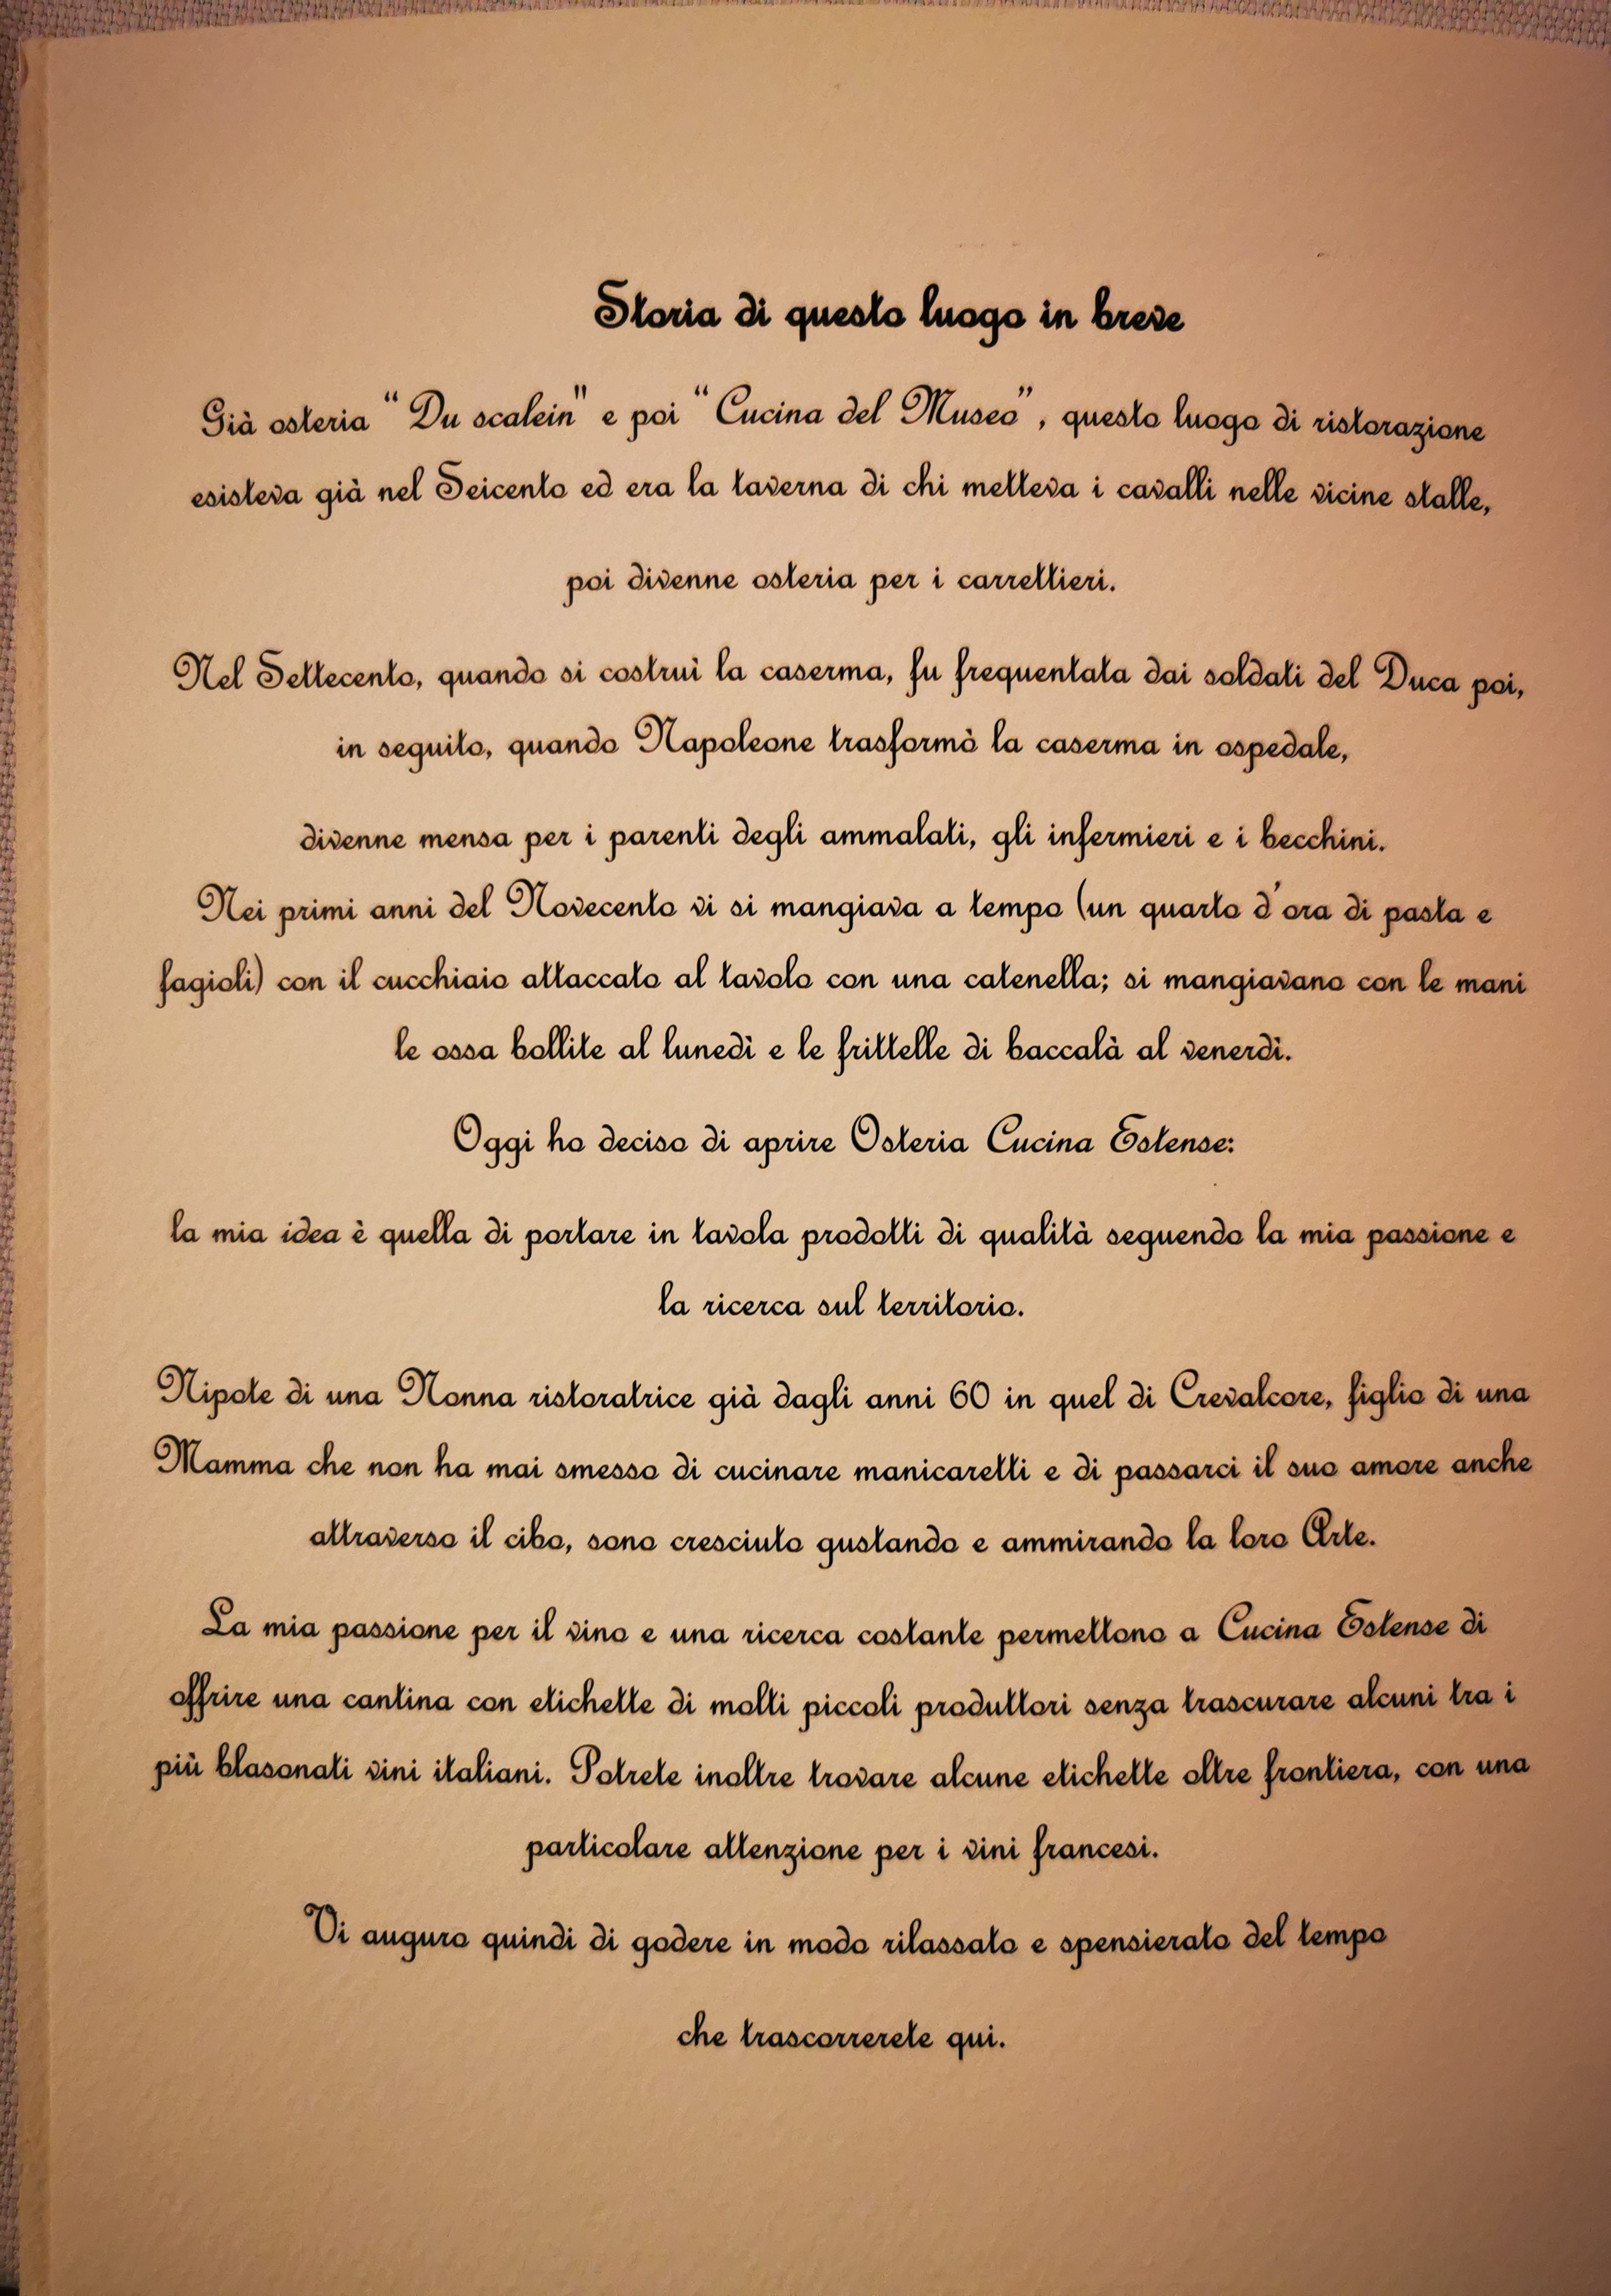 Storia di questo luogo in breve
Già osteria “Du scalein" e poi “Cucina del Museo”, questo luogo di ristorazione
esisteva già nel Seicento ed era la taverna di chi metteva i cavalli nelle vicine stalle,
poi divenne osteria per i carrettieri.
Nel Settecento, quando si costruì la caserma, fu frequentata dai soldati del Duca poi,
in seguito, quando Napoleone trasformò la caserma in ospedale,
divenne mensa per i parenti degli ammalati, gli infermieri e i becchini.
Nei primi anni del Novecento vi si mangiava a tempo (un quarto d'ora di pasta e
fagioli) con il cucchiaio attaccato al tavolo con una catenella; si mangiavano con le mani
le ossa bollite al lunedì e le frittelle di baccalà al venerdì.
Oggi ho deciso di aprire Osteria Cucina Estense:
la mia idea è quella di portare in tavola prodotti di qualità seguendo la mia passione e
la ricerca sul territorio.
Nipote di una Nonna ristoratrice già dagli anni 60 in quel di Crevalcore, figlio di una
Mamma che non ha mai smesso di cucinare manicaretti e di passarci il suo amore anche
attraverso il cibo, sono cresciuto gustando e ammirando la loro Arte.
La mia passione per il vino e una ricerca costante permettono a Cucina Estense di
offrire una cantina con etichette di molti piccoli produttori senza trascurare alcuni tra i
più blasonati vini italiani. Potrete inoltre trovare alcune etichette oltre frontiera, con una
particolare attenzione per i vini francesi.
Vi auguro quindi di godere in modo rilassato e spensierato del tempo
che trascorrerete qui.